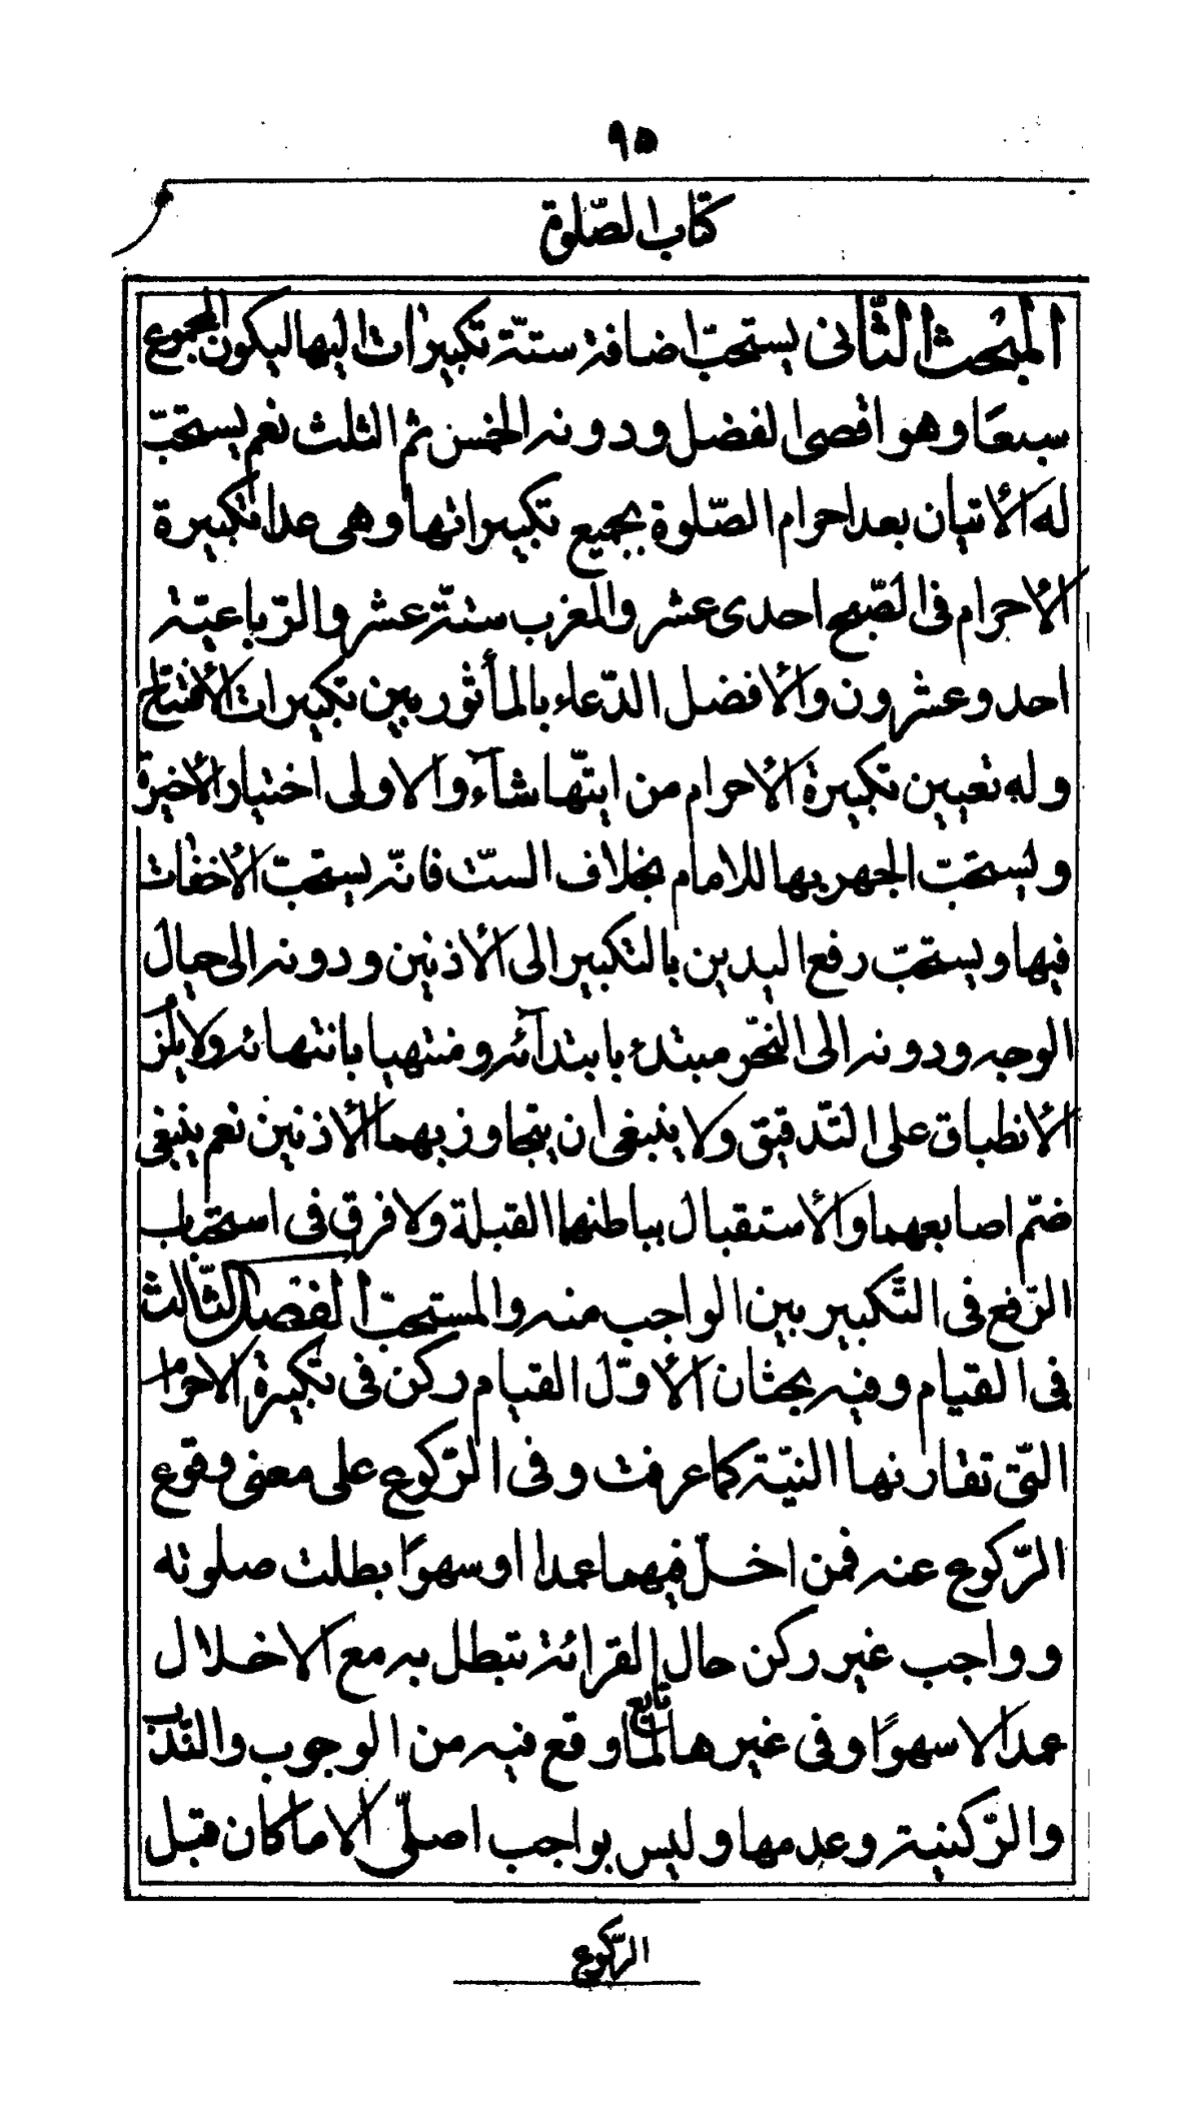 ٩٥
كتاب الصّلوة
المبحث الثّانى يستحبّ اضافة ستّة تكبيرات اليها ليكون المجموع
سبعًا وهو اقصى الفضل ودونه الخمس ثم الثلث نعم يستحبّ
له الأتيان بعد احرام الصّلوة بجميع تكبيراتها وهى عدا تكبيرة
الأحرام فى الصّبح احدى عشر والمغرب ستّة عشر والرّباعيّة
احد وعشرون والأفضل الدّعاء بالمأثور بين تكبيرات الأفتتاح
وله تعيين تكبيرة الأحرام من ايّتها شآء والاولى اختيار الأخيرة
ويستحبّ الجهر بها للامام بخلاف الستّ فانّه يستحبّ الأخفات
فيها ويستحبّ رفع اليدين بالتكبير الى الأذنين ودونه الى حيال
الوجه ودونه الى النّحر مبتدء بابتدآئه ومنتهيا بانتهائه ولا يلزم
الأنطباق على التّدقيق ولا ينبغى ان يتجاوز بهما الأذنين نعم ينبغى
ضمّ اصابعهما والأستقبال بباطنهما القبلة ولا فرق فى استحباب
الرّفع فى التّكبير بين الواجب منه والمستحبّ الفصل الثّالث
فى القيام وفيه بحثان الأوّل القيام ركن فى تكبيرة الاحرام
التّى تقارنها النيّة كما عرفت وفى الرّكوع على معنى وقوع
الرّكوع عنه فمن اخلّ فيهما عمدا او سهوًا بطلت صلوته
وواجب غير ركن حال القرائة تبطل به مع الاخلال
عمدا لا سهوًا وفى غيرها تابع لما وقع فيه من الوجوب والنّدب
والرّكنية وعدمها وليس بواجب اصلّى الا ما كان قبل
الرّكوع